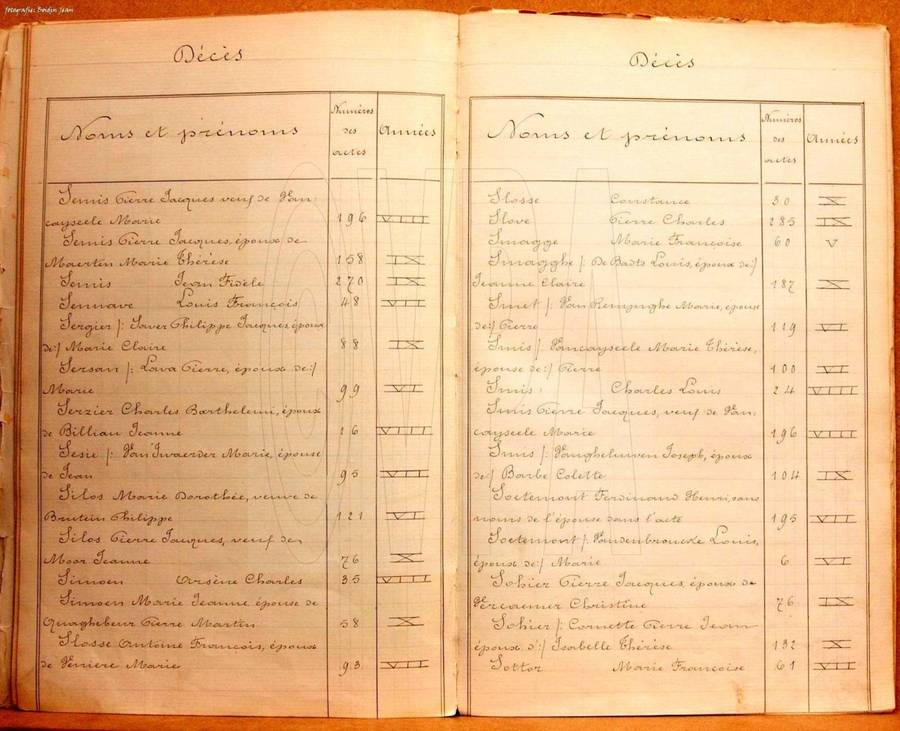 fotografie: Boidin Jean
Décès
Noms et prénoms
Numéros des actes
Années
Semis Pierre Jacques veuf de Van
cayseele Marie 196 VIII
Semis Pierre Jacques, époux de
Maerten Marie Thérèse 158 IX
Semis Jean Fidèle 270 IX
Sennave Louis François 48 VII
Sergier /: Saver Philippe Jacques époux
de:/ Marie Claire 88 IX
Sersan /: Lava Pierre, époux de:/
Marie 99 VI
Serzier Charles Barthelemi, époux
de Billiau Jeanne 16 VIII
Sesie /: Van Iwaerder Marie, épouse
de Jean 95 VII
Silos Marie Dorothée, veuve de
Brutein Philippe 121 VI
Silos Pierre Jacques, veuf de
Moor Jeanne 76 X
Simoen Arsène Charles 35 VIII
Simoen Marie Jeanne épouse de
Quaghebeur Pierre Martin 58 X
Slosse Antoine François, époux
de Veniere Marie 93 VII
Décès
Noms et prénoms
Numéros des actes
Années
Slosse Constance 30 X
Slove Pierre Charles 285 IX
Smagge Marie Françoise 60 V
Smagghe /: De Badts Louis, époux de:/
Jeanne Claire 187 X
Smet /: Van Rempinghe Marie, épouse
de:/ Pierre 119 VI
Smis /: Vancayseele Marie Thérèse,
épouse de:/ Pierre 100 VI
Smis Charles Louis 24 VIII
Smis Pierre Jacques, veuf de Van
cayseele Marie 196 VIII
Smis /: Vangheluwen Joseph, époux
de:/ Barbe Colette 104 IX
Soetemont Ferdinand Henri, sans
noms de l'épouse dans l'acte 195 VII
Soetemont /: Vandenbroucke Louis,
époux de:/ Marie 6 VI
Sohier Pierre Jacques, époux de
Vercaemer Christine 76 IX
Sohier /: Cornette Pierre Jean
époux d':/ Isabelle Thérèse 132 X
Sottor Marie Françoise 61 VII